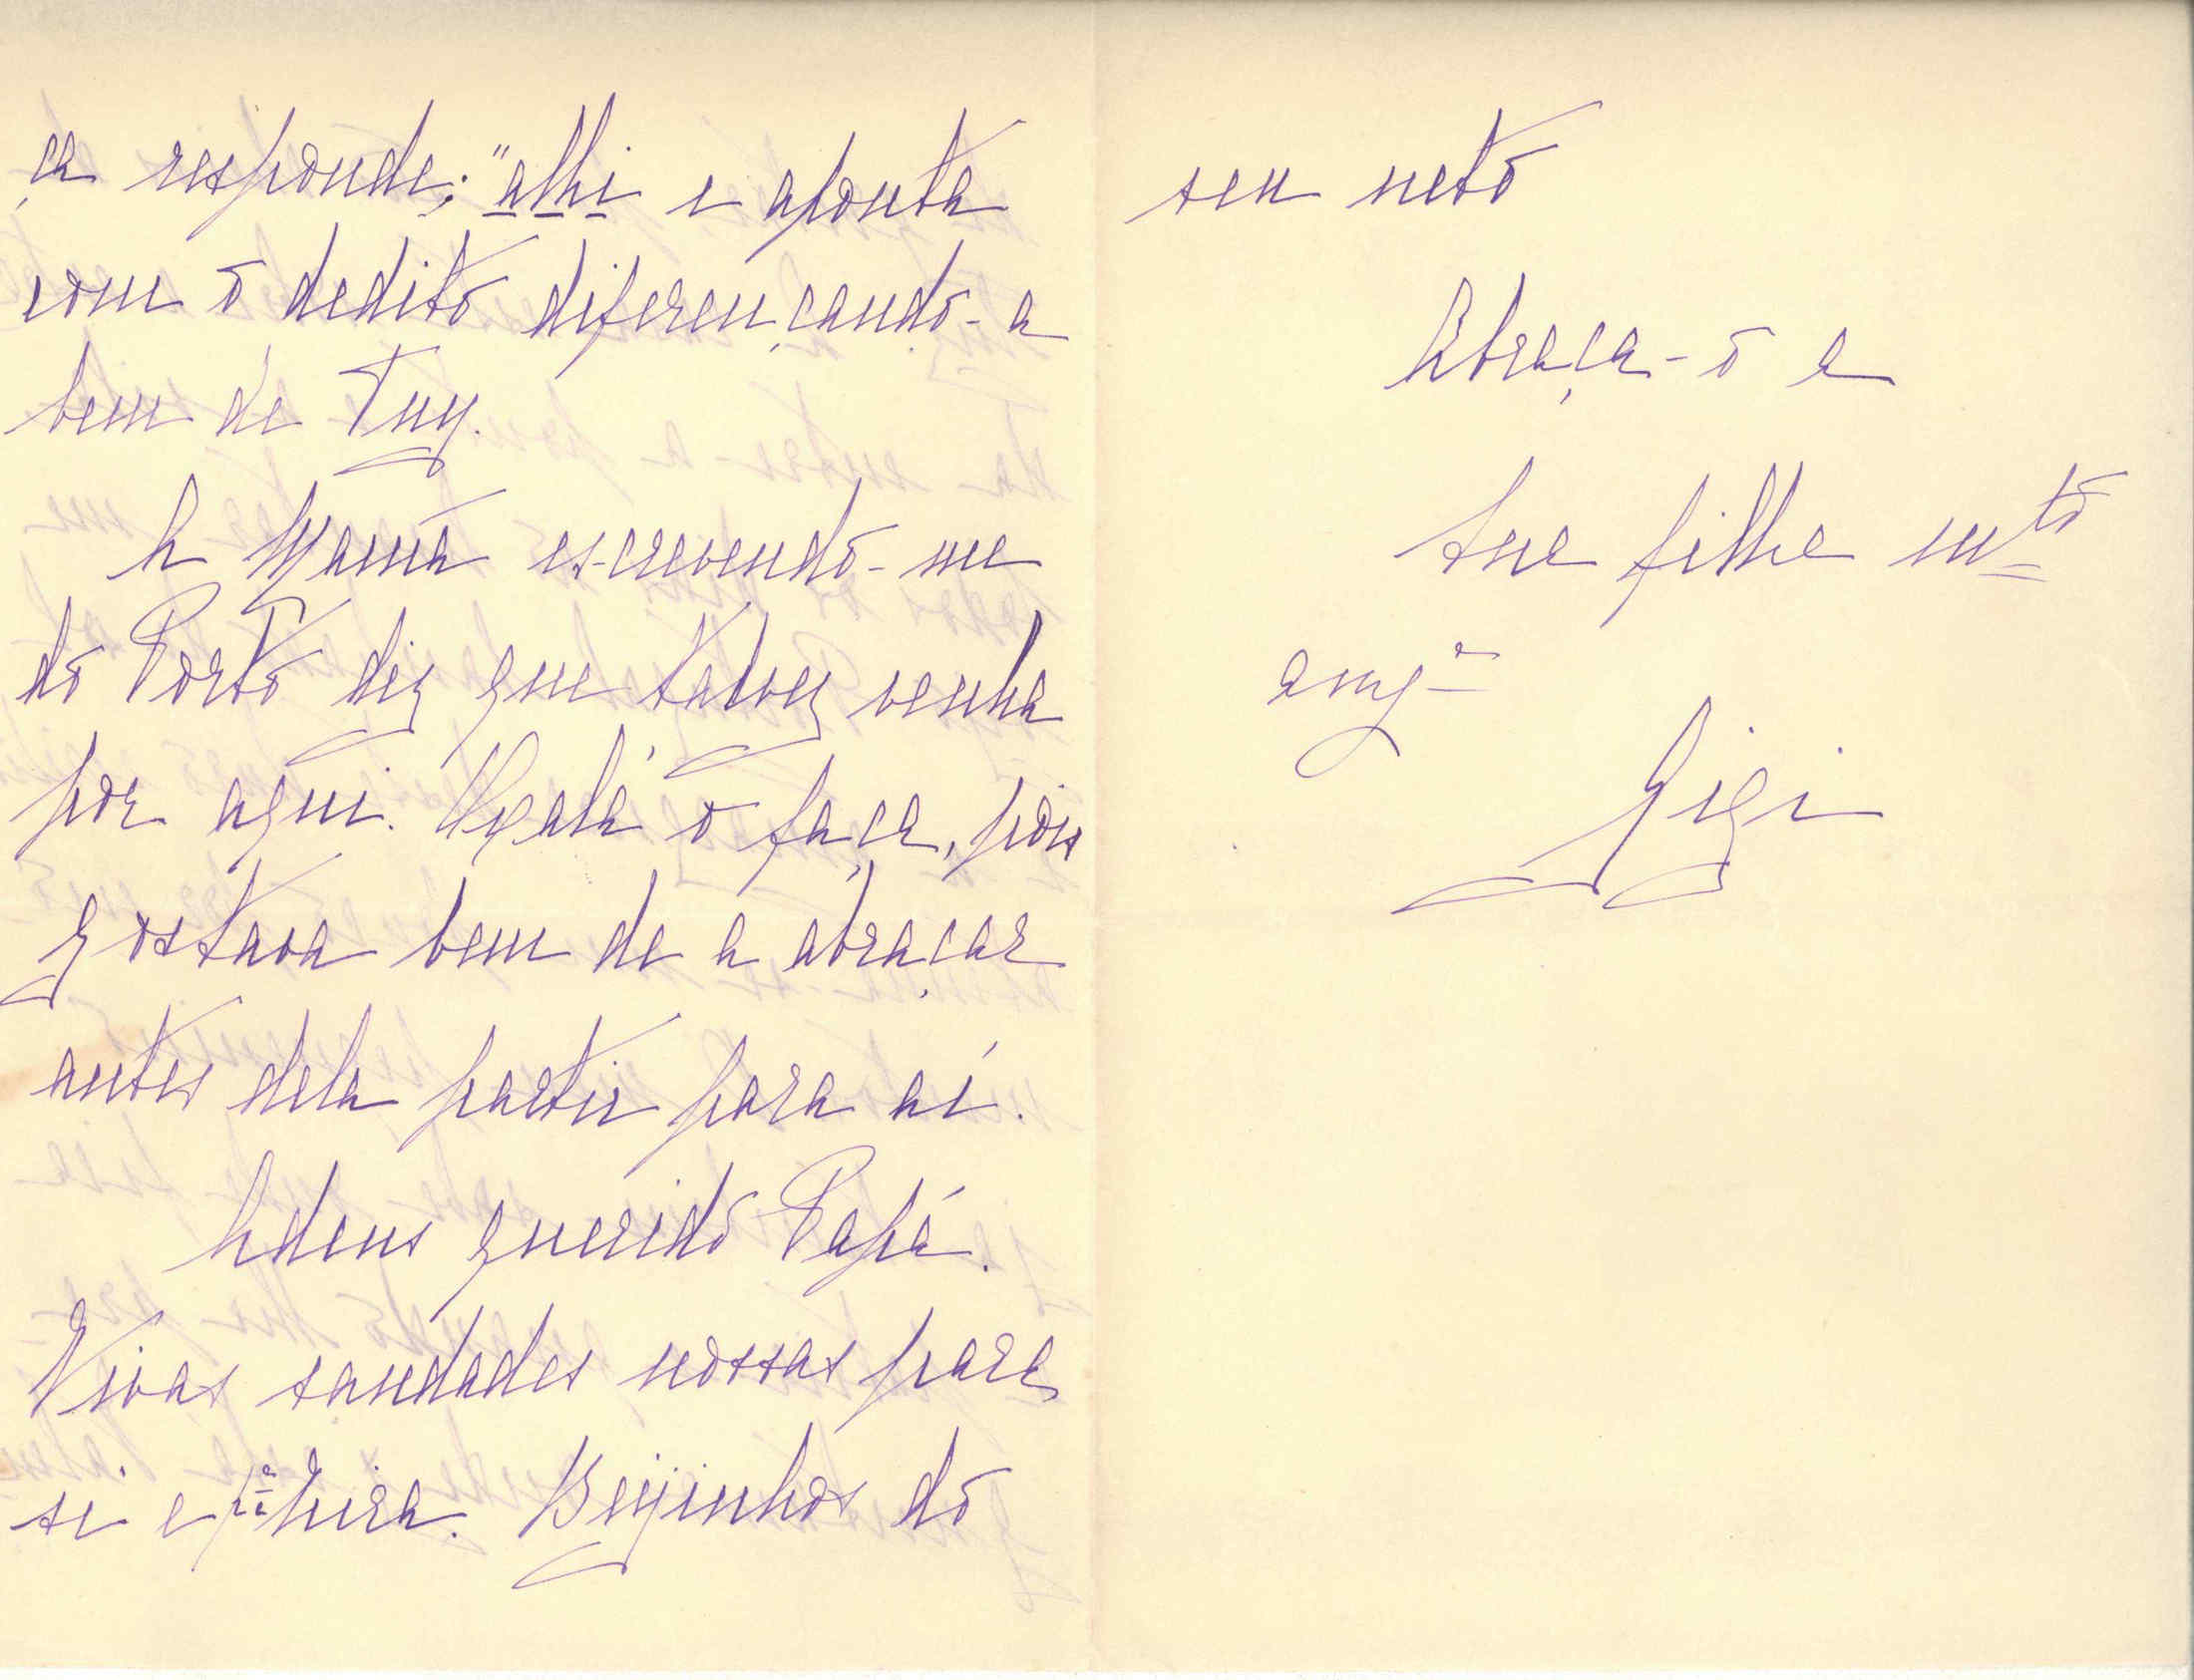 ça responde; "alhi e aponta
com o dedito diferençando-a
bem de Tuy.
A Mamã escrevendo-me
do Porto diz que talvez venha
por aqui. Oxalá o faça, pois
gostava bem de a abraçar
antes dela partir para aí.
Adeus querido Papá.
Vivas saudades nossas para
si e pª Beijinhos do
seu neto
Abraça-o a
Sua filha mto
amgª
Gigi